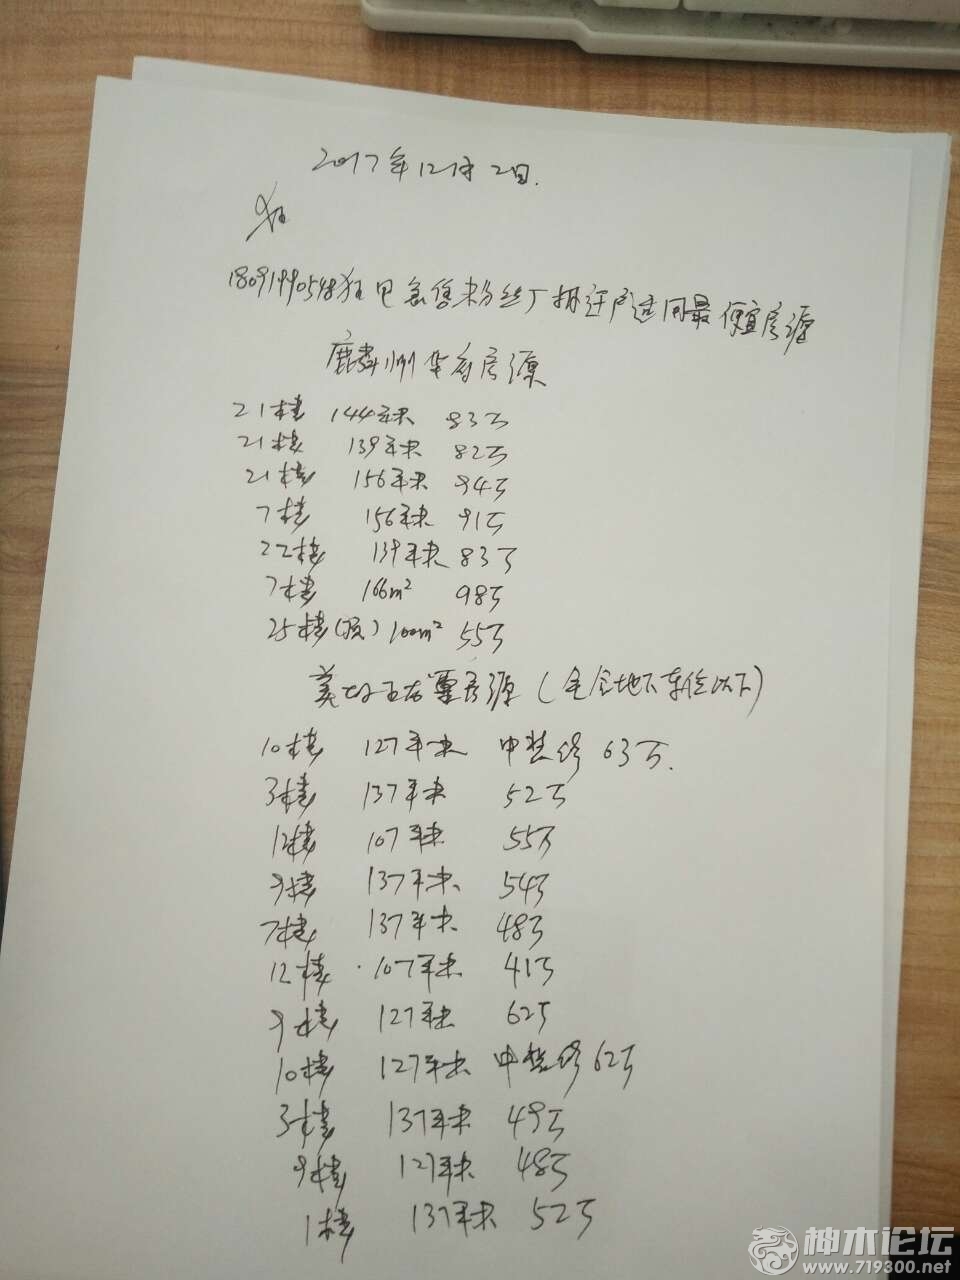 2017年12月2日.
18091990548狂甩急售粉丝厂拆迁户适用最便宜房源
麟州华府房源
21楼 144平米 83万
21楼 139平米 82万
21楼 156平米 94万
7楼 156平米 91万
22楼 139平米 83万
7楼 166m² 98万
25楼( ) 100m² 55万
房源(包含地下车位以下)
10楼 127平米 中装修 63万.
3楼 137平米 52万
12楼 107平米 55万
9楼 137平米 54万
7楼 137平米 48万
12楼 107平米 41万
9楼 127平米 62万
10楼 127平米 中装修 62万
3楼 137平米 49万
9楼 127平米 48万
1楼 137平米 52万
神木论坛
www.719300.net